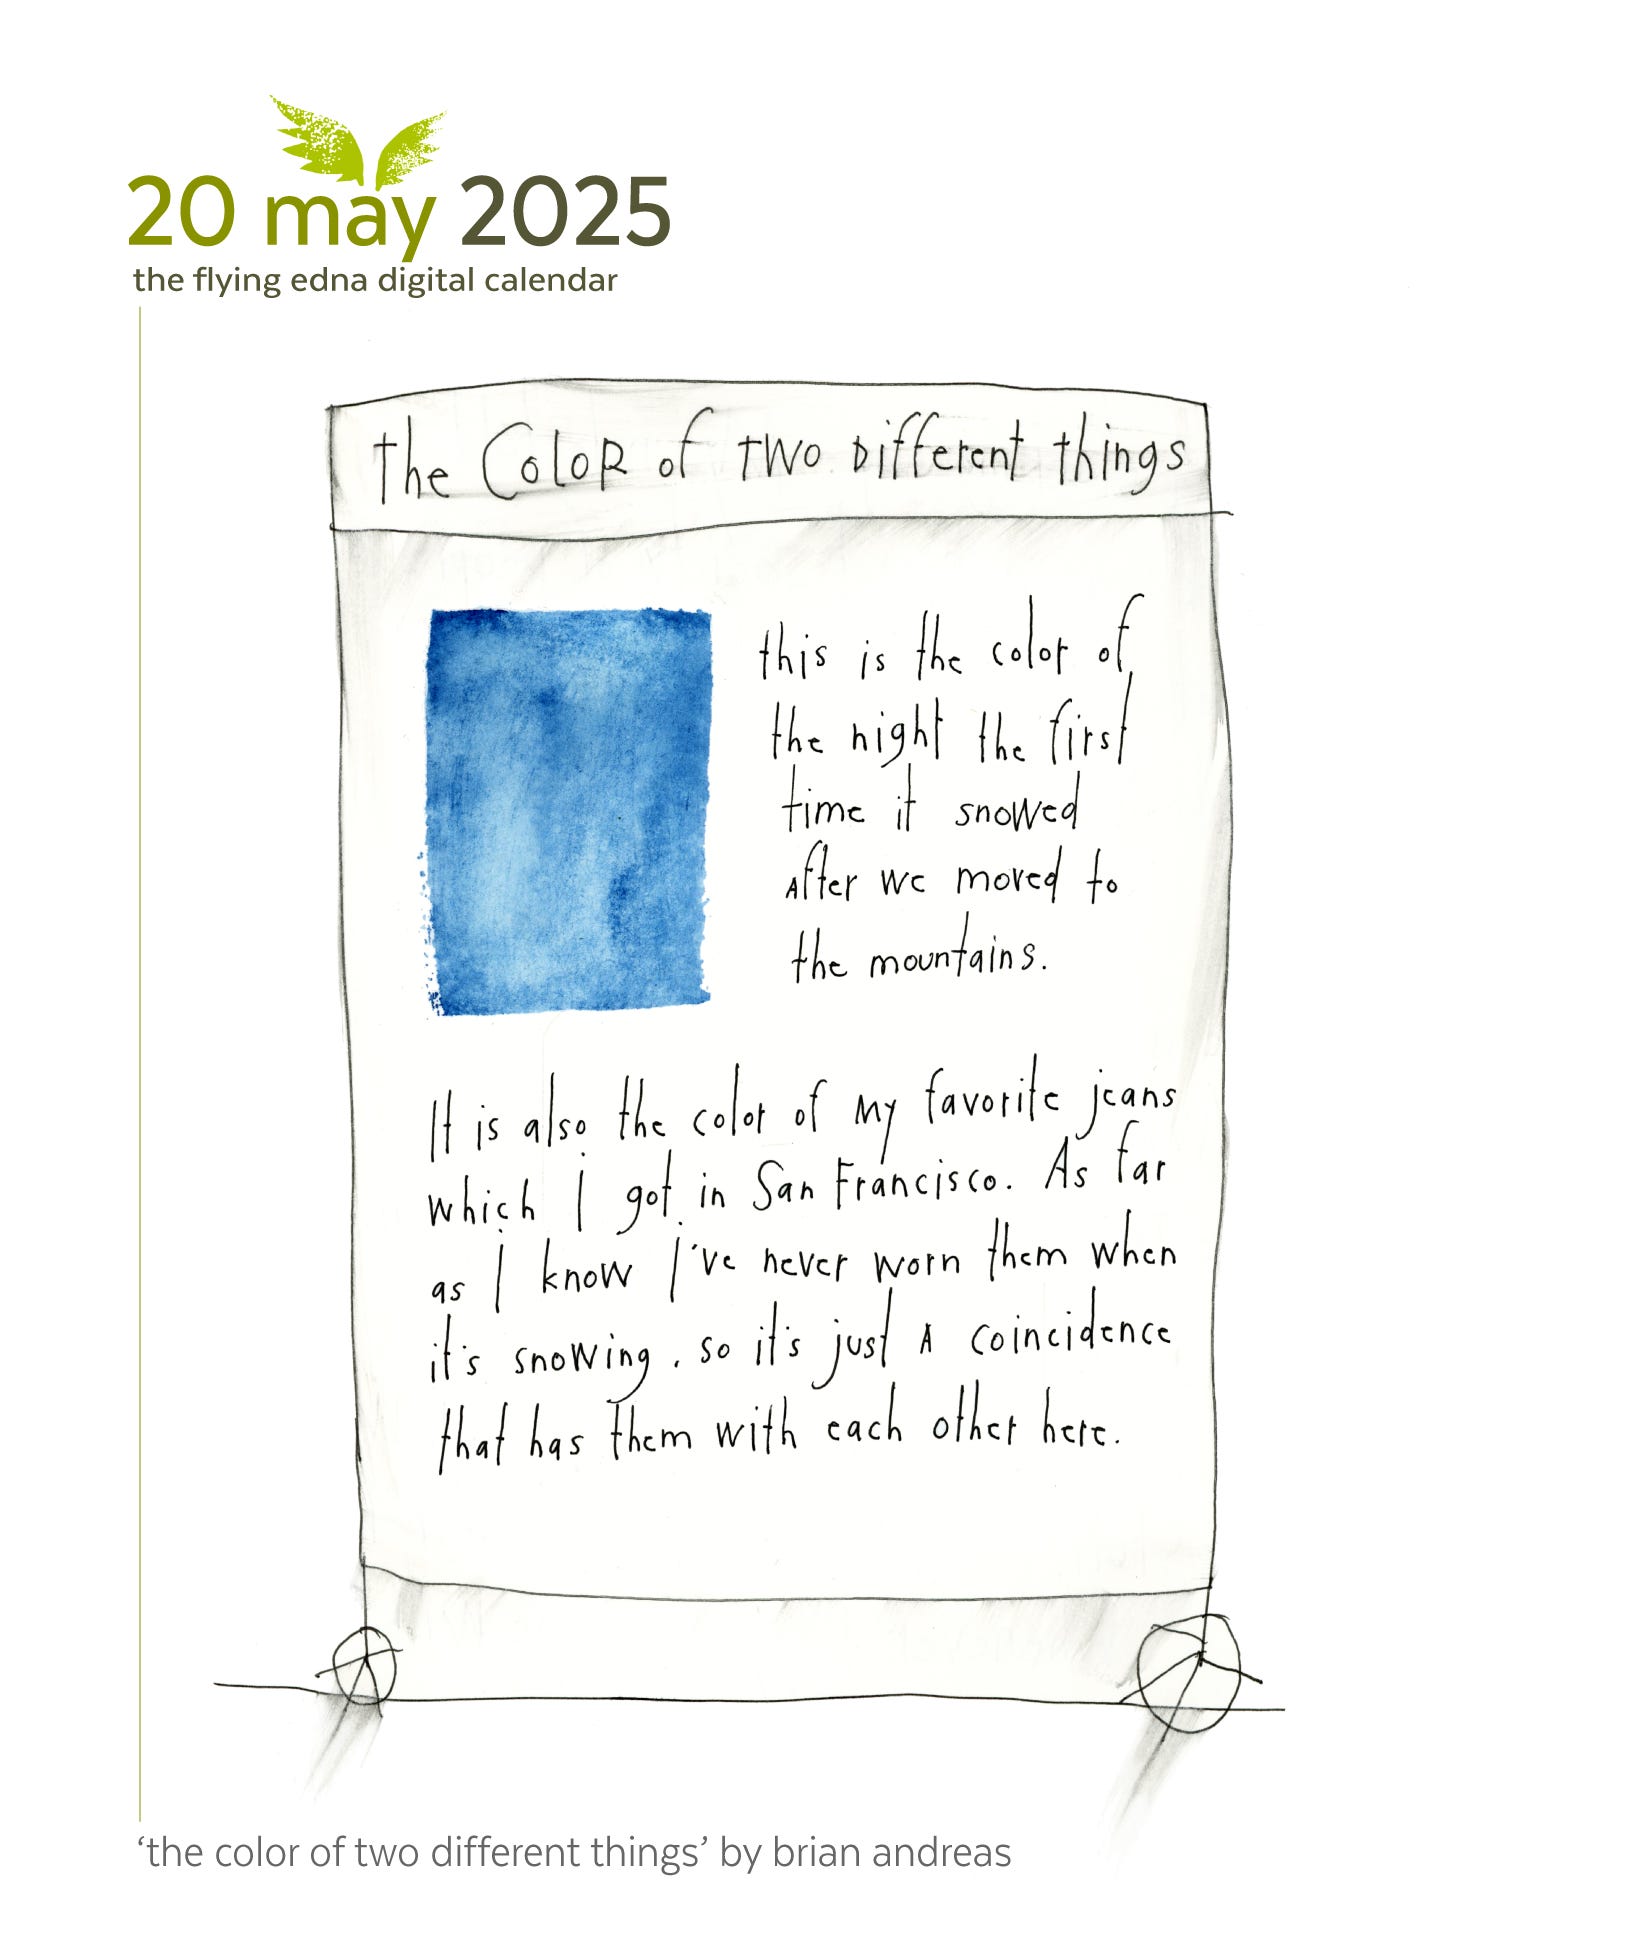 20 may 2025
the flying edna digital calendar
The Color of Two Different things
this is the color of
the night the first
time it snowed
after we moved to
the mountains.
It is also the color of my favorite jeans
which I got in San Francisco. As far
as I know I've never worn them when
it's snowing. so it's just a coincidence
that has them with each other here.
‘the color of two different things’ by brian andreas